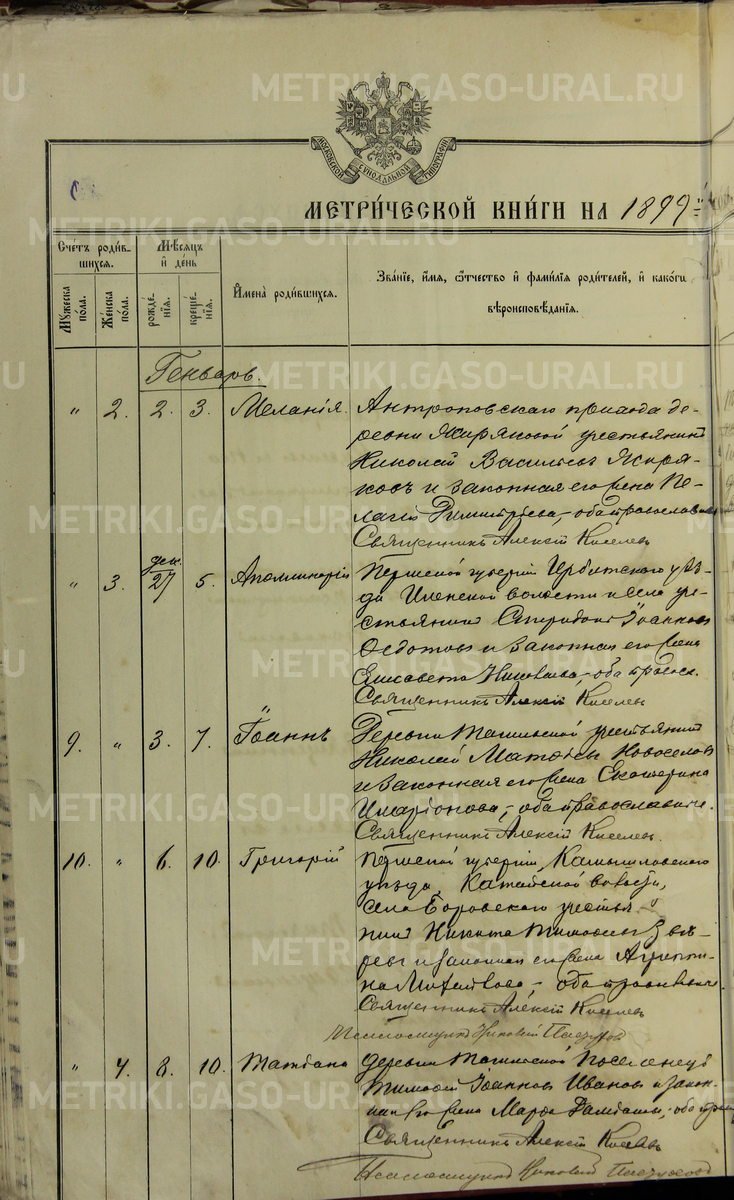 METRIKI.GASO-URAL.RU
МОСКОВСКОЙ СѴНОДАЛЬНОЙ ТИПОГРАФІИ
МЕТРИ́ЧЕСКОЙ КНИ́ГИ НА 1899
Сче́тъ роди́в-
шихся.
Мѣ́сяцъ
и҆ де́нь
Мꙋ́жеска по́ла.
Же́нска по́ла.
рожде́-
нія.
креще́-
нія.
И҆мена̀ роди́вшихся.
Зва́ніе, и҆́мя, ѻ҆́тчество и҆ фами́лія роди́телей, и҆ како́гѡ
вѣроисповѣ́данія.
Генварь.
" 2. 2. 3. Меланія. Антроповскаго прихода де-
ревни Жиряковой крестьянинъ
Николай Васильевъ Жиря-
ковъ и законная его жена Пе-
лагія Димитріева, оба православные
Священникъ Алексій Киселевъ
" 3. дек. 27 5. Апполинарія Пермской губерніи Ирбитскаго уѣз-
да волости и села кре-
стьянинъ Спиридонъ Іоанновъ
Ѳедотовъ и законная его жена
Елисавета оба правосл.
Священникъ Алексій Киселевъ
9. " 3. 7. Іоаннъ Деревни крестьянинъ
Николай Новоселовъ
и законная его жена Екатерина
Иларіонова, оба православные.
Священникъ Алексій Киселевъ.
10. " 6. 10. Григорій Пермской губерніи, Камышловскаго
уѣзда, Катайской волости,
села Боровскаго крестья-
нинъ Никита Тимофеевъ Звѣ-
ревъ и законная его жена Агриппи-
на оба православные.
Священникъ Алексій Киселевъ
Псаломщикъ
" 4. 8. 10. Татіана Деревни поселенецъ
Тимофей Іоанновъ Ивановъ и закон-
ная его жена Марѳа оба
Священникъ Алексій Киселевъ
Псаломщикъ